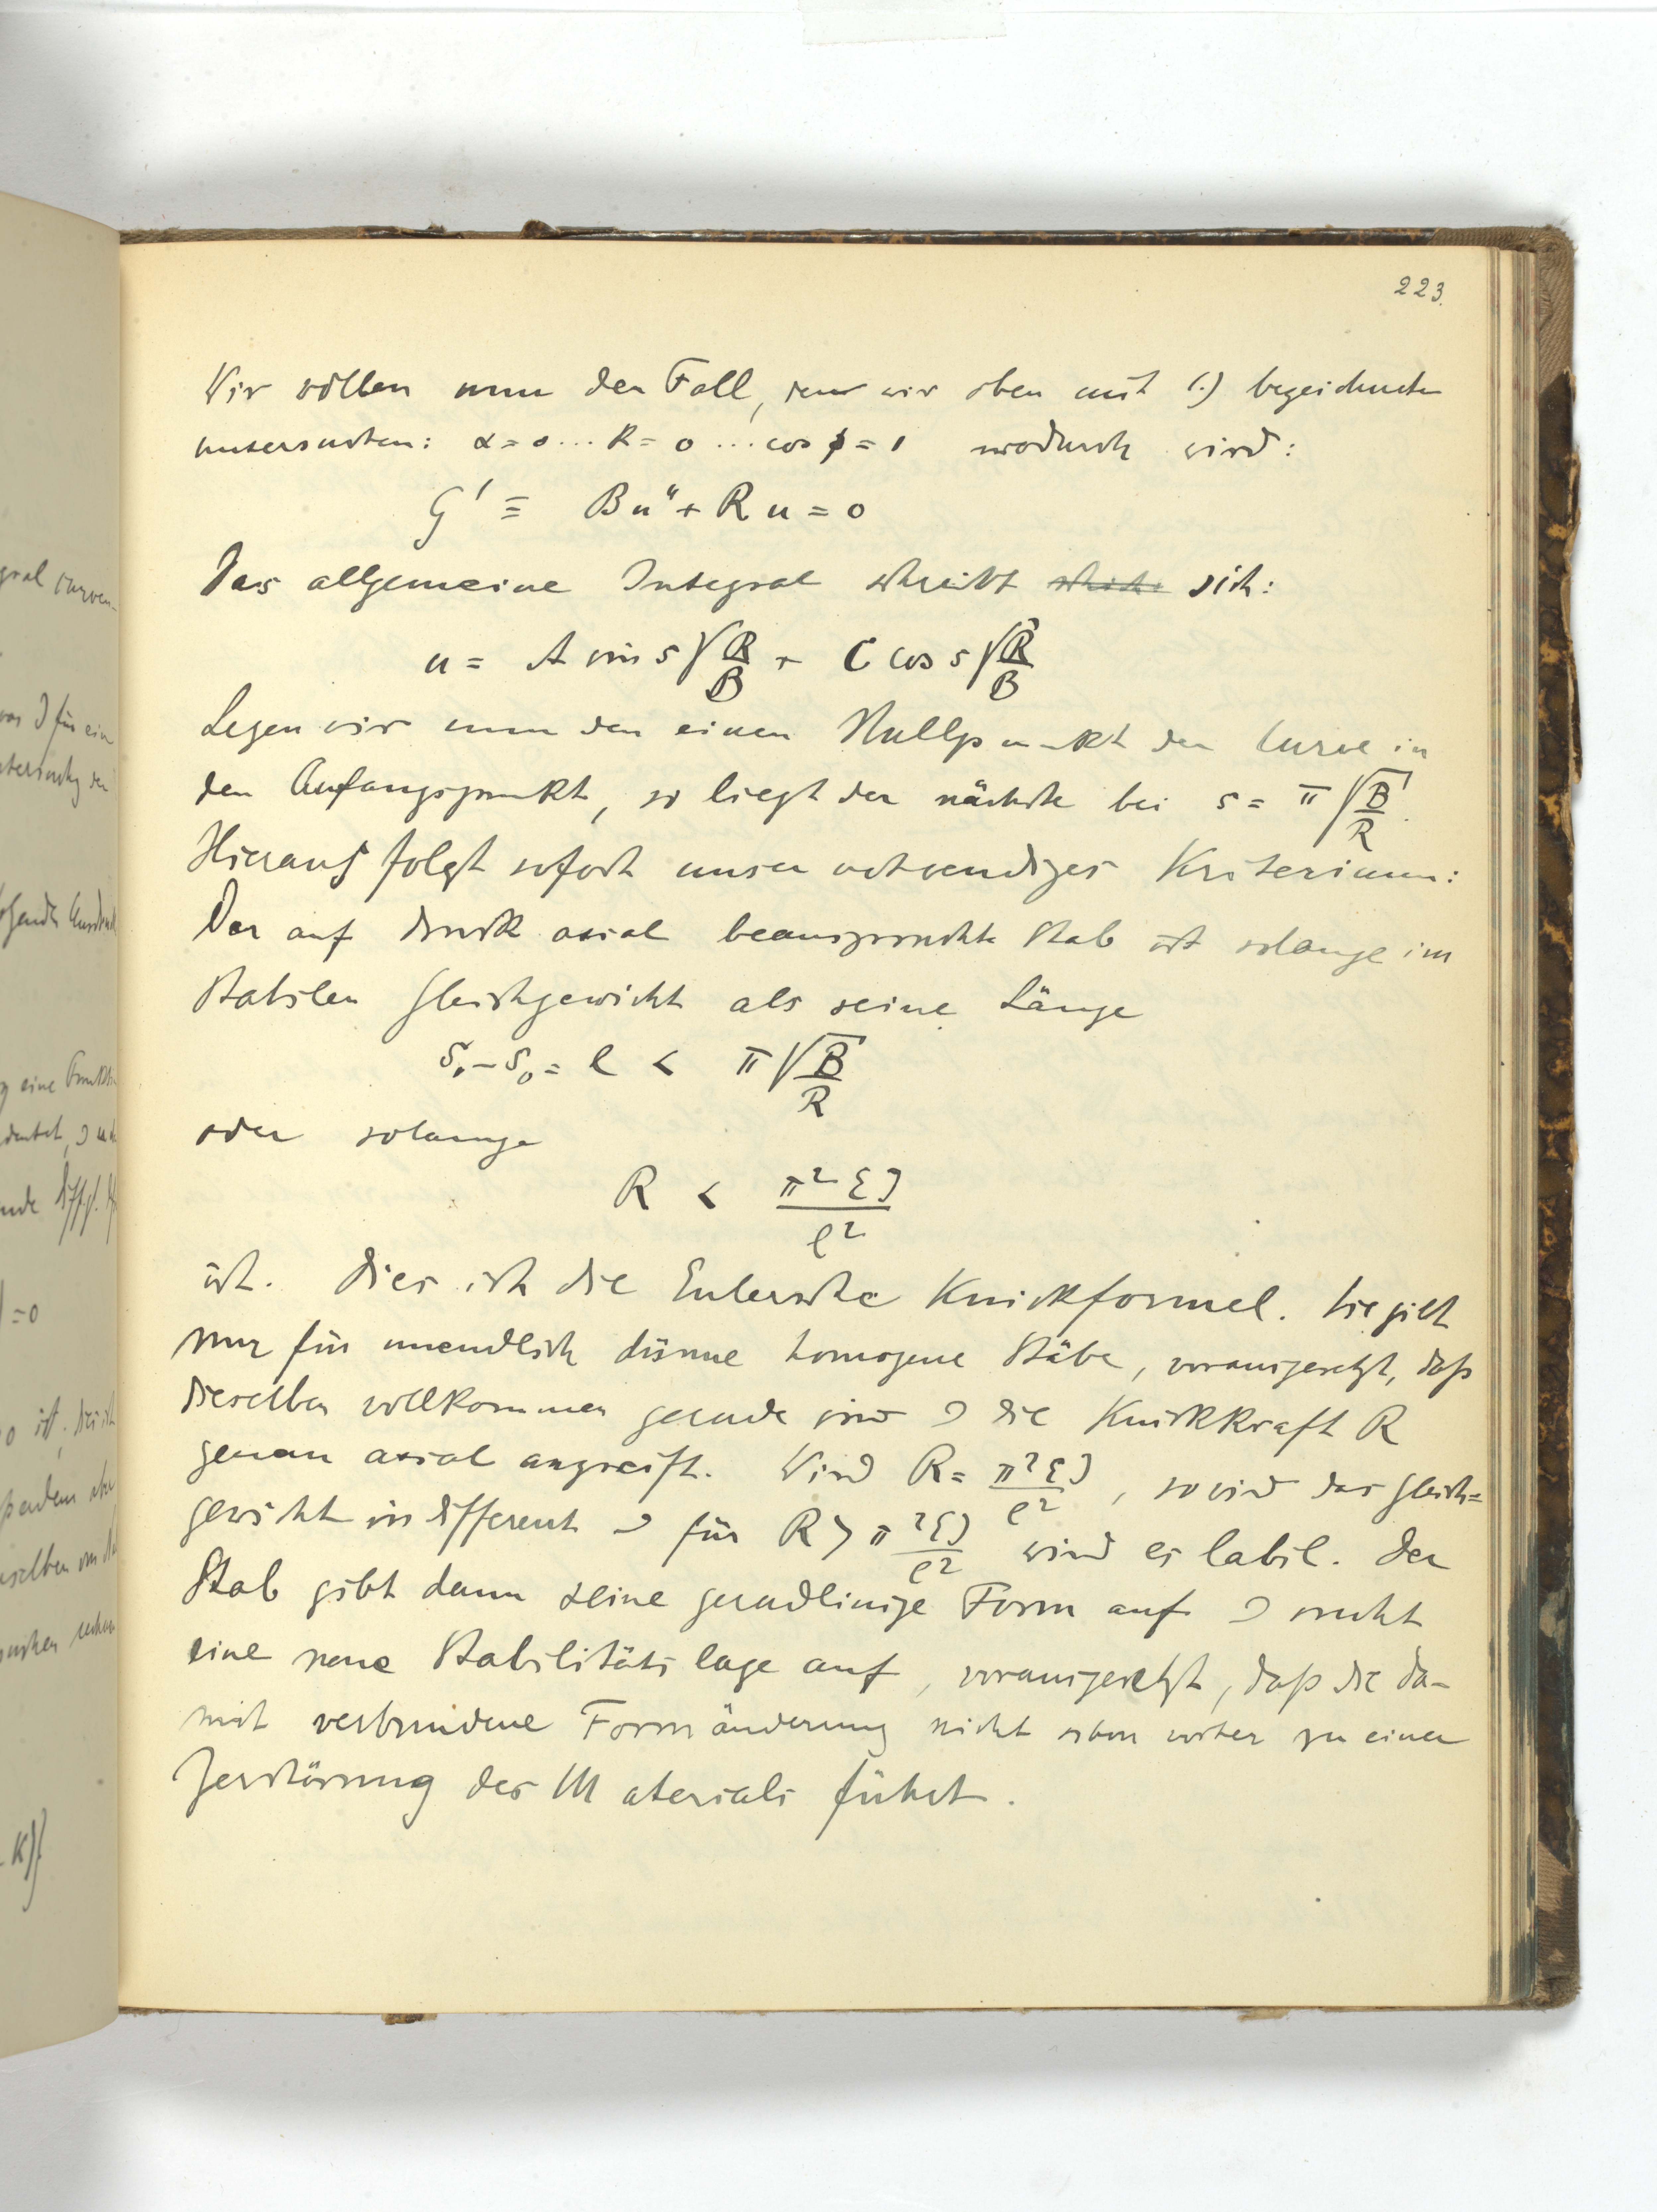 223.
Wir wollen nun den Fall, den wir oben mit 1.) bezeichneten
untersuchen: α = 0 ... k = 0 ... cos φ = 1 wodurch wird:
G' ≡ Bu" + Ru = 0
Das allgemeine Integral schreibt sich:
u = A sin s √(R/B) + C cos s √(R/B)
Legen wir nun den einen Nullpunkt der Curve in
den Anfangspunkt, so liegt der nächste bei s = π √(B/R).
Hieraus folgt sofort unser notwendiges Kriterium:
Der auf Druck axial beanspruchte Stab ist solange im
stabilen Gleichgewicht als seine Länge
s₁ - s₀ = l < π √(B/R)
oder solange
R < π² E J / l²
ist. Dies ist die Eulersche Knickformel. Sie gilt
nur für unendlich dünne homogene Stäbe, vorausgesetzt, daß
dieselben vollkommen gerade sind & die Knickkraft R
genau axial angreift. Wird R = π² E J / l², so wird das Gleich=
gewicht indifferent & für R > π² E J / l² wird es labil. Der
Stab gibt dann seine geradlinige Form auf & sucht
eine neue Stabilitätslage auf, vorausgesetzt, daß die da-
mit verbundene Formänderung nicht schon vorher zu einer
Zerstörung des Materials führt.
gral curven-
was J für ein
eine
=0
0 ist, dies ist
K)}